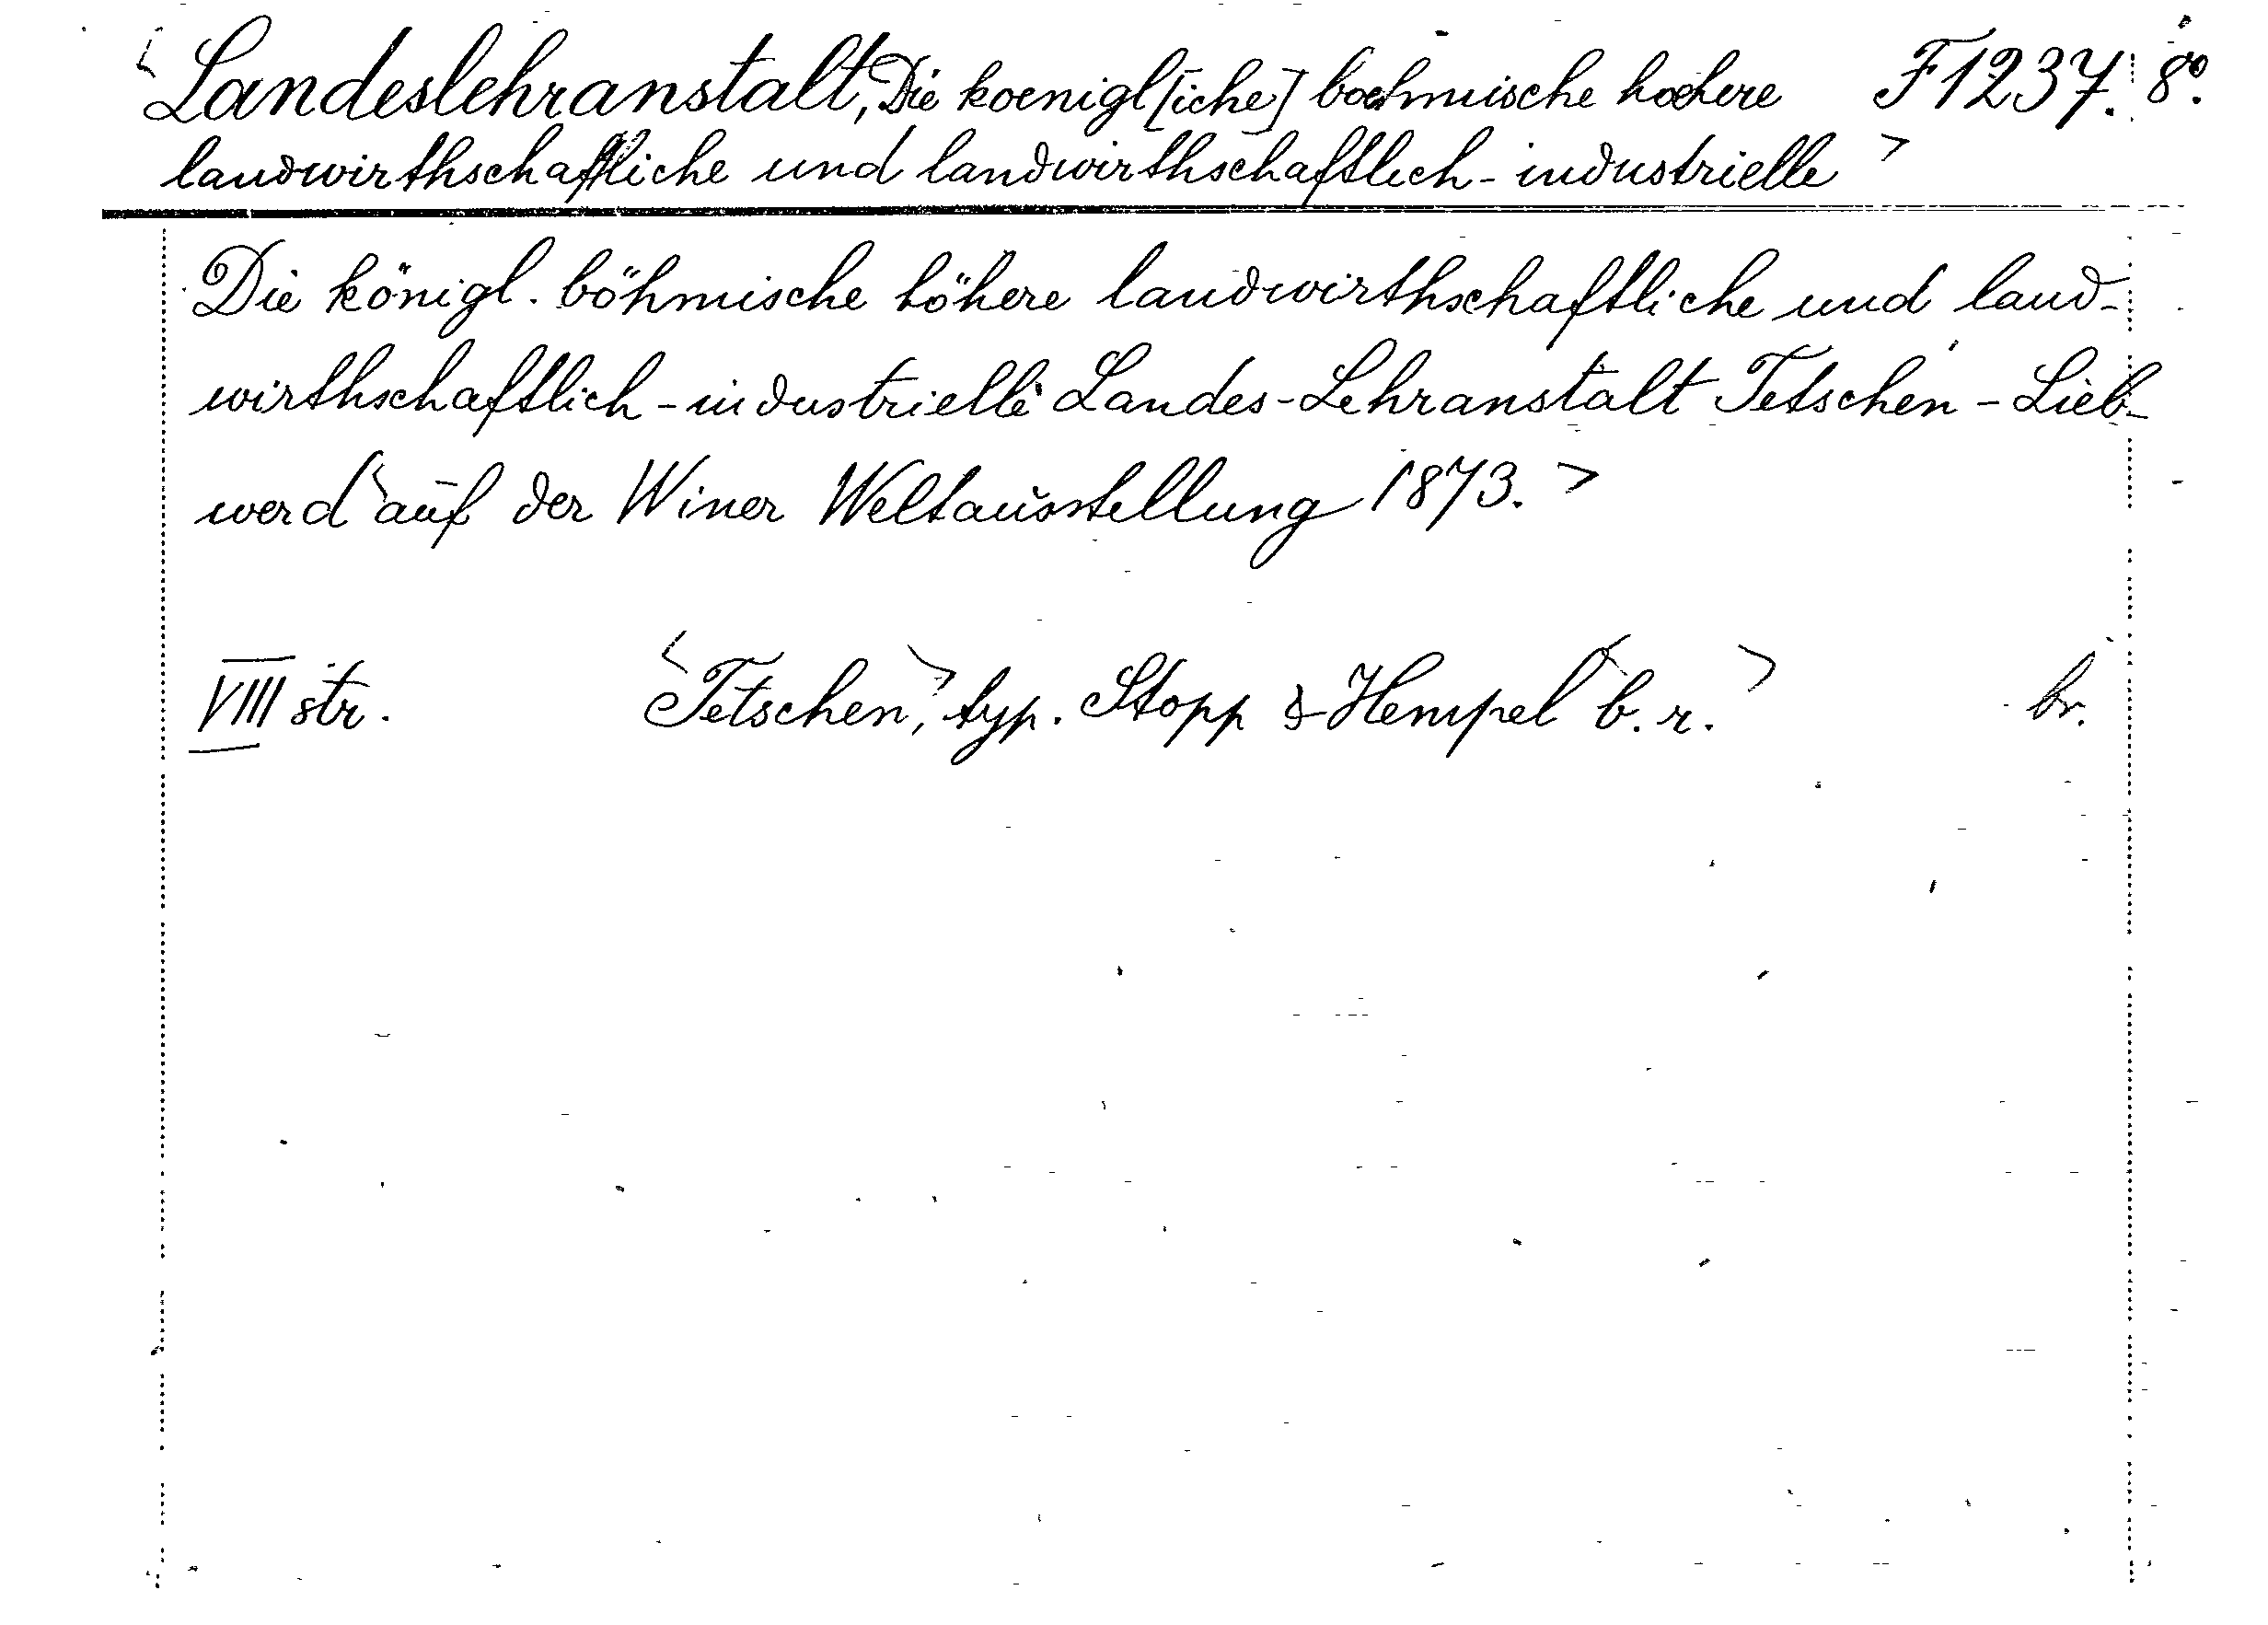 <Landeslehranstalt, Die koenigl[iche] boehmische hoehere F 1237. 8°.
landwirthschaftliche und landwirthschaftlich-industrielle>
Die königl. böhmische höhere landwirthschaftliche und land-
wirthschaftlich-industrielle Landes-Lehranstalt Tetschen-Lieb-
werd <auf der Winer Weltausstellung 1873.>
VIII str. <Tetschen,> typ. Stopp & Hempel <b. r.> br.